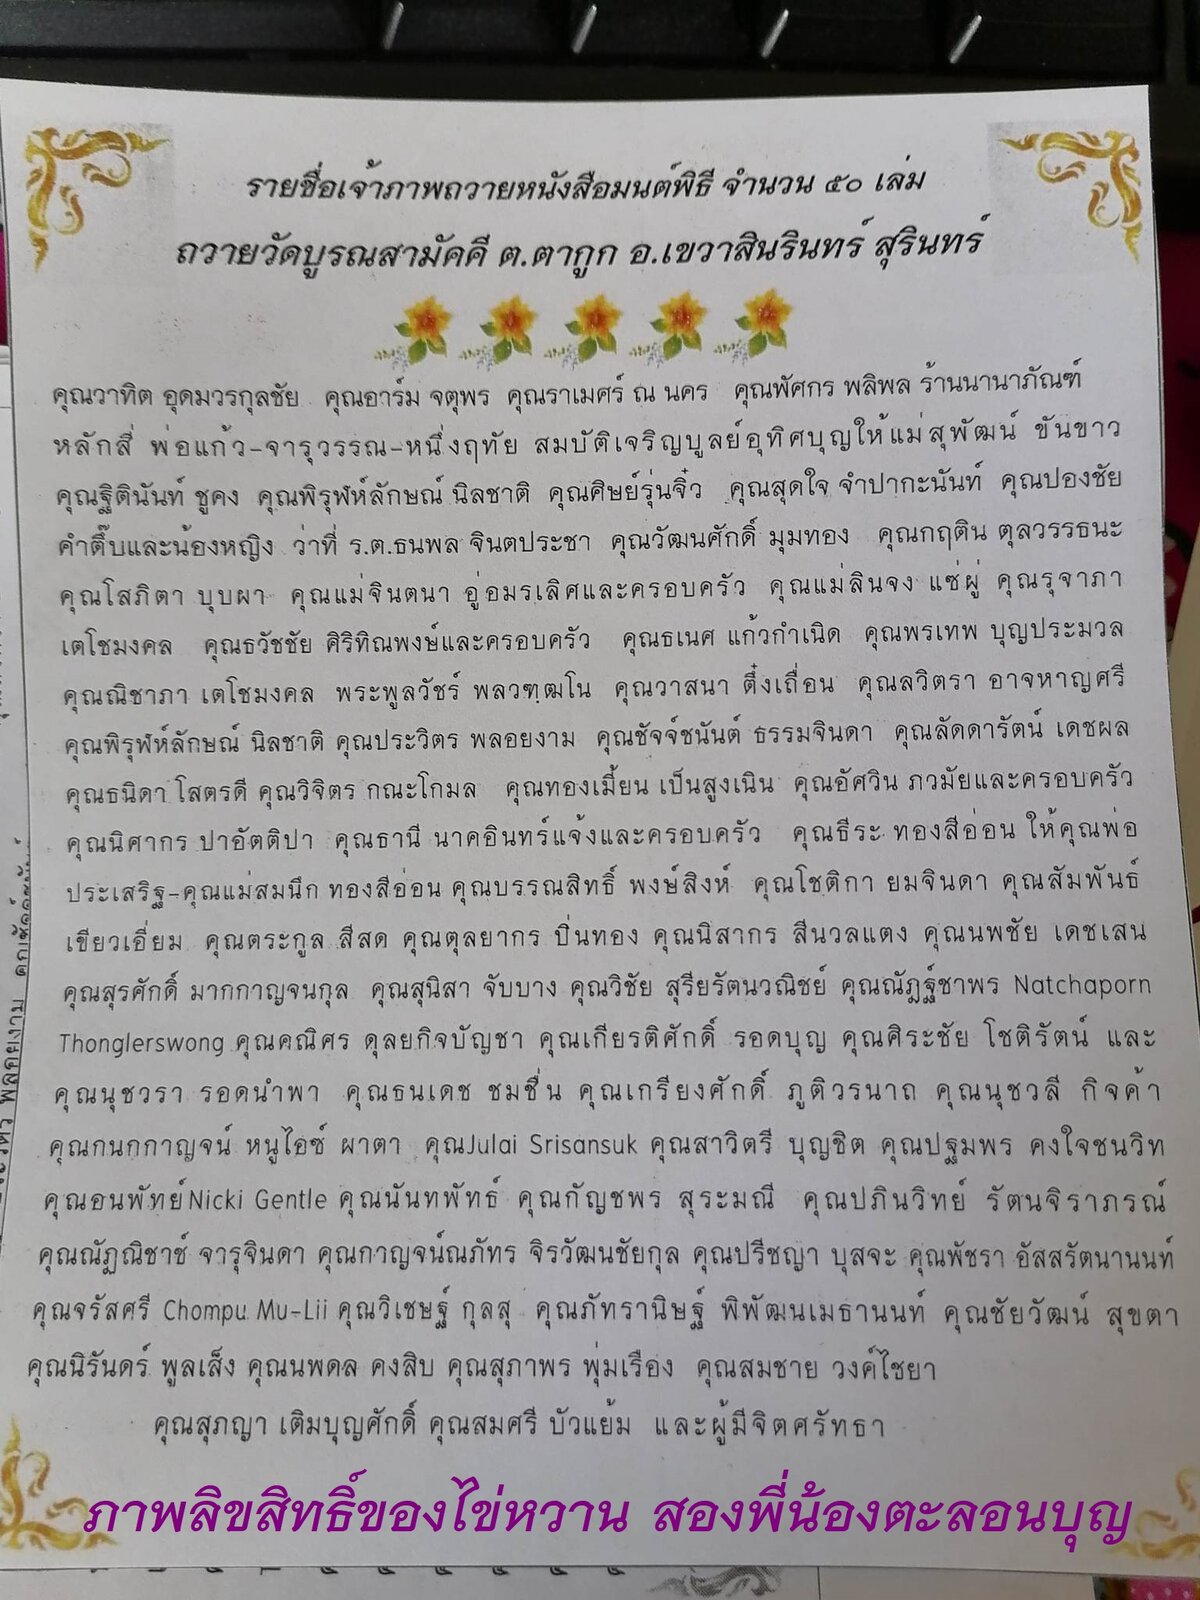 รายชื่อเจ้าภาพถวายหนังสือมนต์พิธี จำนวน ๕๐ เล่ม
ถวายวัดบูรณสามัคคี ต.ตากูก อ.เขวาสินรินทร์ สุรินทร์
คุณวาทิต อุดมวรกุลชัย คุณอาร์ม จตุพร คุณราเมศร์ ณ นคร คุณพัศกร พลิพล ร้านนานาภัณฑ์
หลักสี่ พ่อแก้ว-จารุวรรณ-หนึ่งฤทัย สมบัติเจริญบูลย์อุทิศบุญให้แม่สุพัฒน์ ขันขาว
คุณฐิตินันท์ ชูคง คุณพิรุฬห์ลักษณ์ นิลชาติ คุณศิษย์รุ่นจิ๋ว คุณสุดใจ จำปากะนันท์ คุณปองชัย
คำตื๊บและน้องหญิง ว่าที่ ร.ต.ธนพล จินตประชา คุณวัฒนศักดิ์ มุมทอง คุณกฤติน ตุลวรรธนะ
คุณโสภิตา บุบผา คุณแม่จินตนา อู่อมรเลิศและครอบครัว คุณแม่ลินจง แซ่ผู่ คุณรุจาภา
เตโชมงคล คุณธวัชชัย ศิริทิณพงษ์และครอบครัว คุณธเนศ แก้วกำเนิด คุณพรเทพ บุญประมวล
คุณณิชาภา เตโชมงคล พระพูลวัชร์ พลวฑฺฒโน คุณวาสนา ตึ๋งเถื่อน คุณลวิตรา อาจหาญศรี
คุณพิรุฬห์ลักษณ์ นิลชาติ คุณประวิตร พลอยงาม คุณชัจจ์ชนันต์ ธรรมจินดา คุณลัดดารัตน์ เดชผล
คุณธนิดา โสตรดี คุณวิจิตร กณะโกมล คุณทองเมี้ยน เป็นสูงเนิน คุณอัศวิน ภวมัยและครอบครัว
คุณนิศากร ปาอัตติปา คุณธานี นาคอินทร์แจ้งและครอบครัว คุณธีระ ทองสีอ่อน ให้คุณพ่อ
ประเสริฐ-คุณแม่สมนึก ทองสีอ่อน คุณบรรณสิทธิ์ พงษ์สิงห์ คุณโชติกา ยมจินดา คุณสัมพันธ์
เขียวเอี่ยม คุณตระกูล สีสด คุณตุลยากร ปิ่นทอง คุณนิสากร สีนวลแตง คุณนพชัย เดชเสน
คุณสุรศักดิ์ มากกาญจนกุล คุณสุนิสา จับบาง คุณวิชัย สุรียรัตนวณิชย์ คุณณัฎฐ์ชาพร Natchaporn
Thonglerswong คุณคณิศร ดุลยกิจบัญชา คุณเกียรติศักดิ์ รอดบุญ คุณศิระชัย โชติรัตน์ และ
คุณนุชวรา รอดนำพา คุณธนเดช ชมชื่น คุณเกรียงศักดิ์ ภูติวรนาถ คุณนุชวลี กิจค้า
คุณกนกกาญจน์ หนูไอซ์ ผาตา คุณJulai Srisansuk คุณสาวิตรี บุญชิต คุณปฐมพร คงใจชนวิท
คุณอนพัทย์Nicki Gentle คุณนันทพัทธ์ คุณกัญชพร สุระมณี คุณปภินวิทย์ รัตนจิราภรณ์
คุณณัฏณิชาช์ จารุจินดา คุณกาญจน์ณภัทร จิรวัฒนชัยกุล คุณปรีชญา บุสจะ คุณพัชรา อัสสรัตนานนท์
คุณจรัสศรี Chompu Mu-Lii คุณวิเชษฐ์ กุลสุ คุณภัทรานิษฐ์ พิพัฒนเมธานนท์ คุณชัยวัฒน์ สุขตา
คุณนิรันดร์ พูลเส็ง คุณนพดล คงสิบ คุณสุภาพร พุ่มเรือง คุณสมชาย วงค์ไชยา
คุณสุภญา เติมบุญศักดิ์ คุณสมศรี บัวแย้ม และผู้มีจิตศรัทธา
ภาพลิขสิทธิ์ของไข่หวาน สองพี่น้องตะลอนบุญ